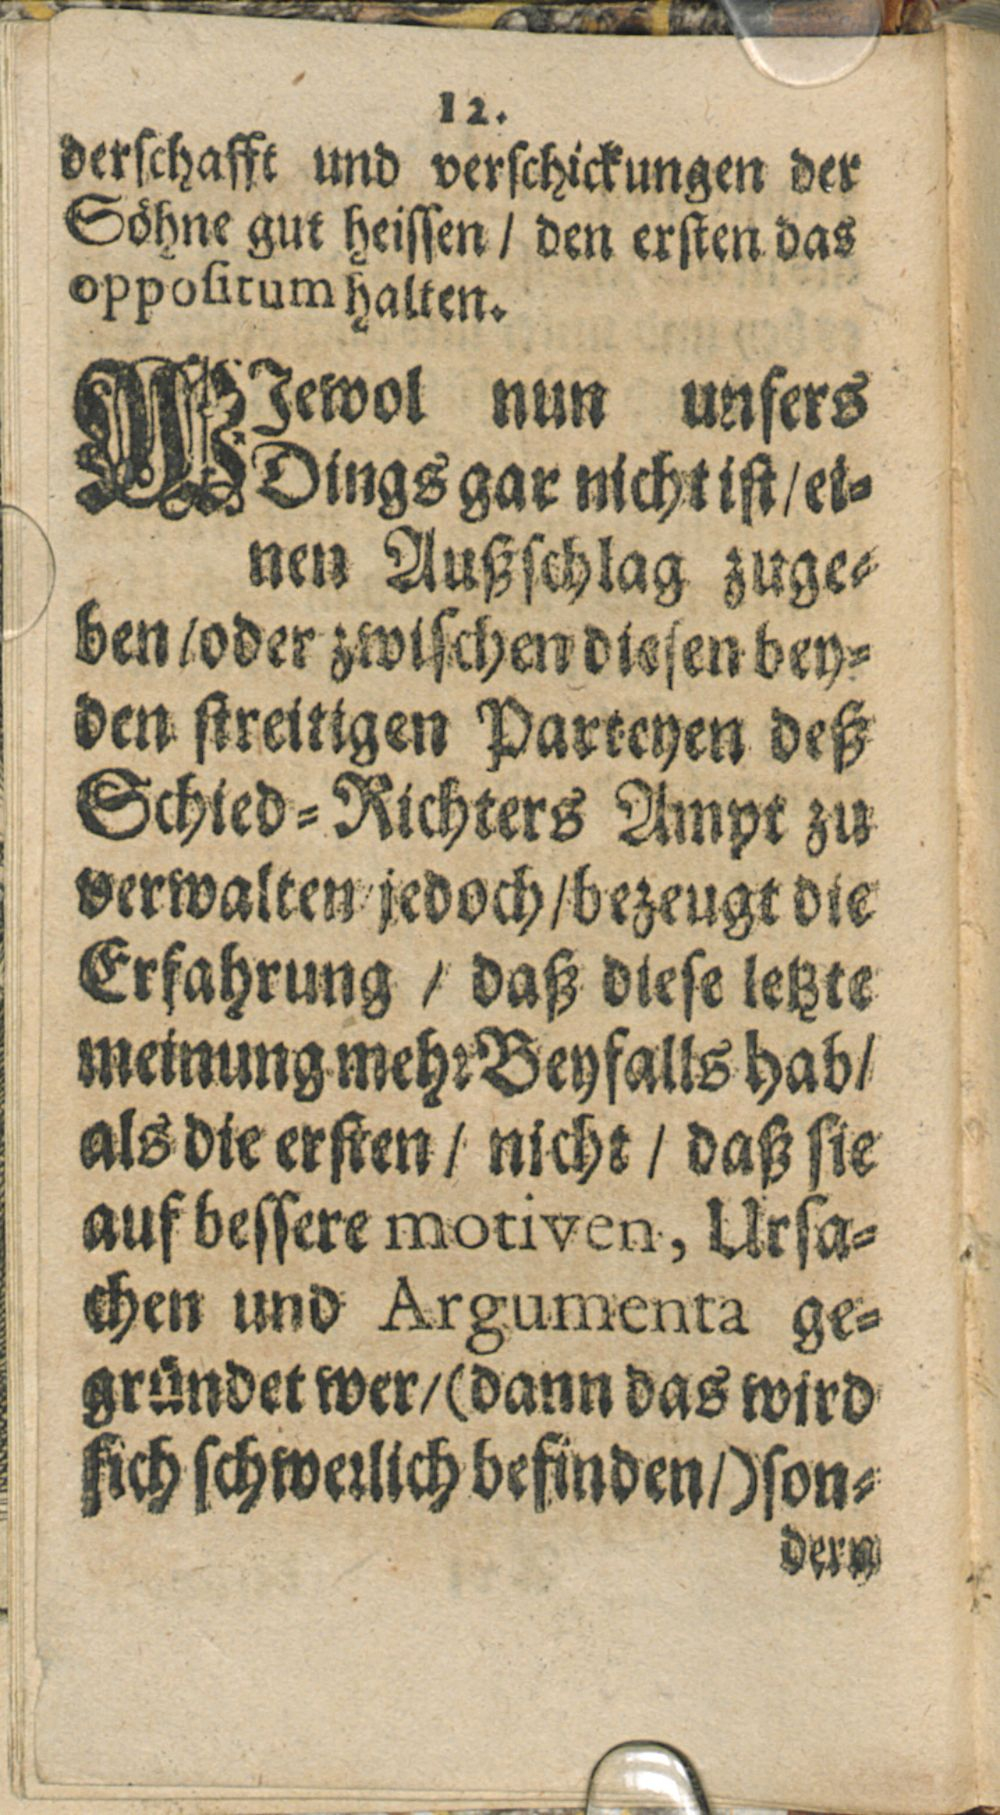 12.
derschafft und verschickungen der
Söhne gut heissen / den ersten das
oppositum halten.
WJewol nun unsers
Dings gar nicht ist / ei-
nen Außschlag zuge-
ben / oder zwischen diesen bey-
den streitigen Parteyen deß
Schied-Richters Ampt zu
verwalten / jedoch / bezeugt die
Erfahrung / daß diese letzte
meinung mehr Beyfalls hab /
als die ersten / nicht / daß sie
auf bessere motiven, Ursa-
chen und Argumenta ge-
gründet wer / (dann das wird
sich schwerlich befinden /) son-
dern